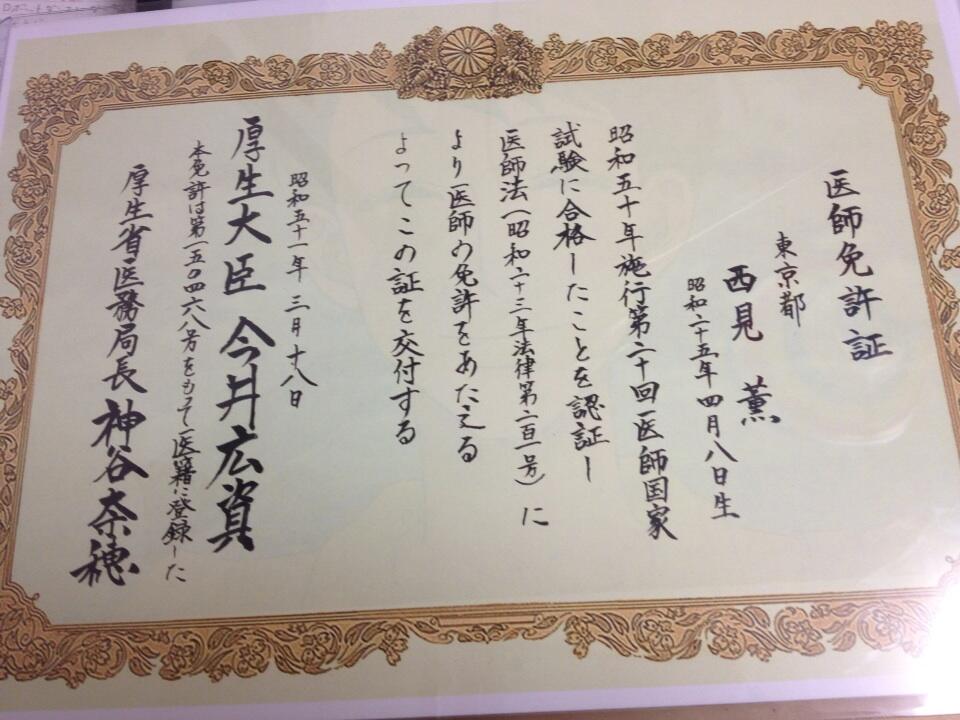 医師免許証
東京都
西見 薫
昭和二十五年四月八日生
昭和五十年施行第二十回医師国家
試験に合格したことを認証し
医師法(昭和二十三年法律第二百一号)に
より医師の免許をあたえる
よってこの証を交付する
昭和五十一年 三月十八日
厚生大臣 今井広資
本免許は第一五〇四六八号をもって医籍に登録した
厚生省医務局長 神谷奈穂